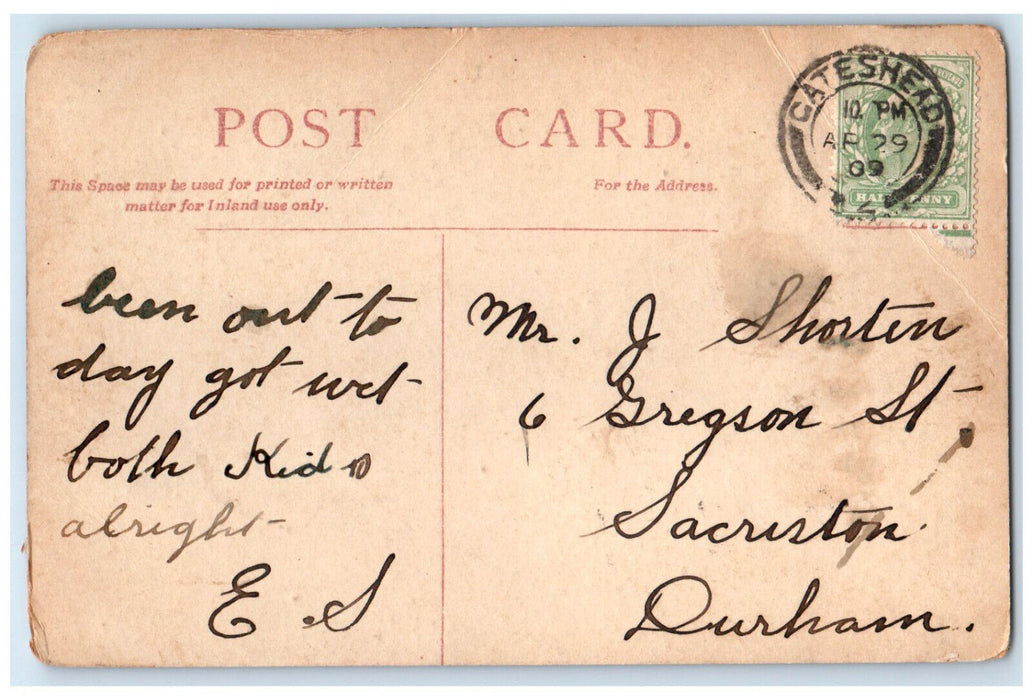 POST CARD.
This Space may be used for printed or written
matter for Inland use only.
For the Address.
GATESHEAD
10 PM
AP 29
09
REVENUE
HALFPENNY
been out to
day got wet
both Kids
alright
E.S
Mr. J Shorten
6 Gregson St,
Sacriston.
Durham.